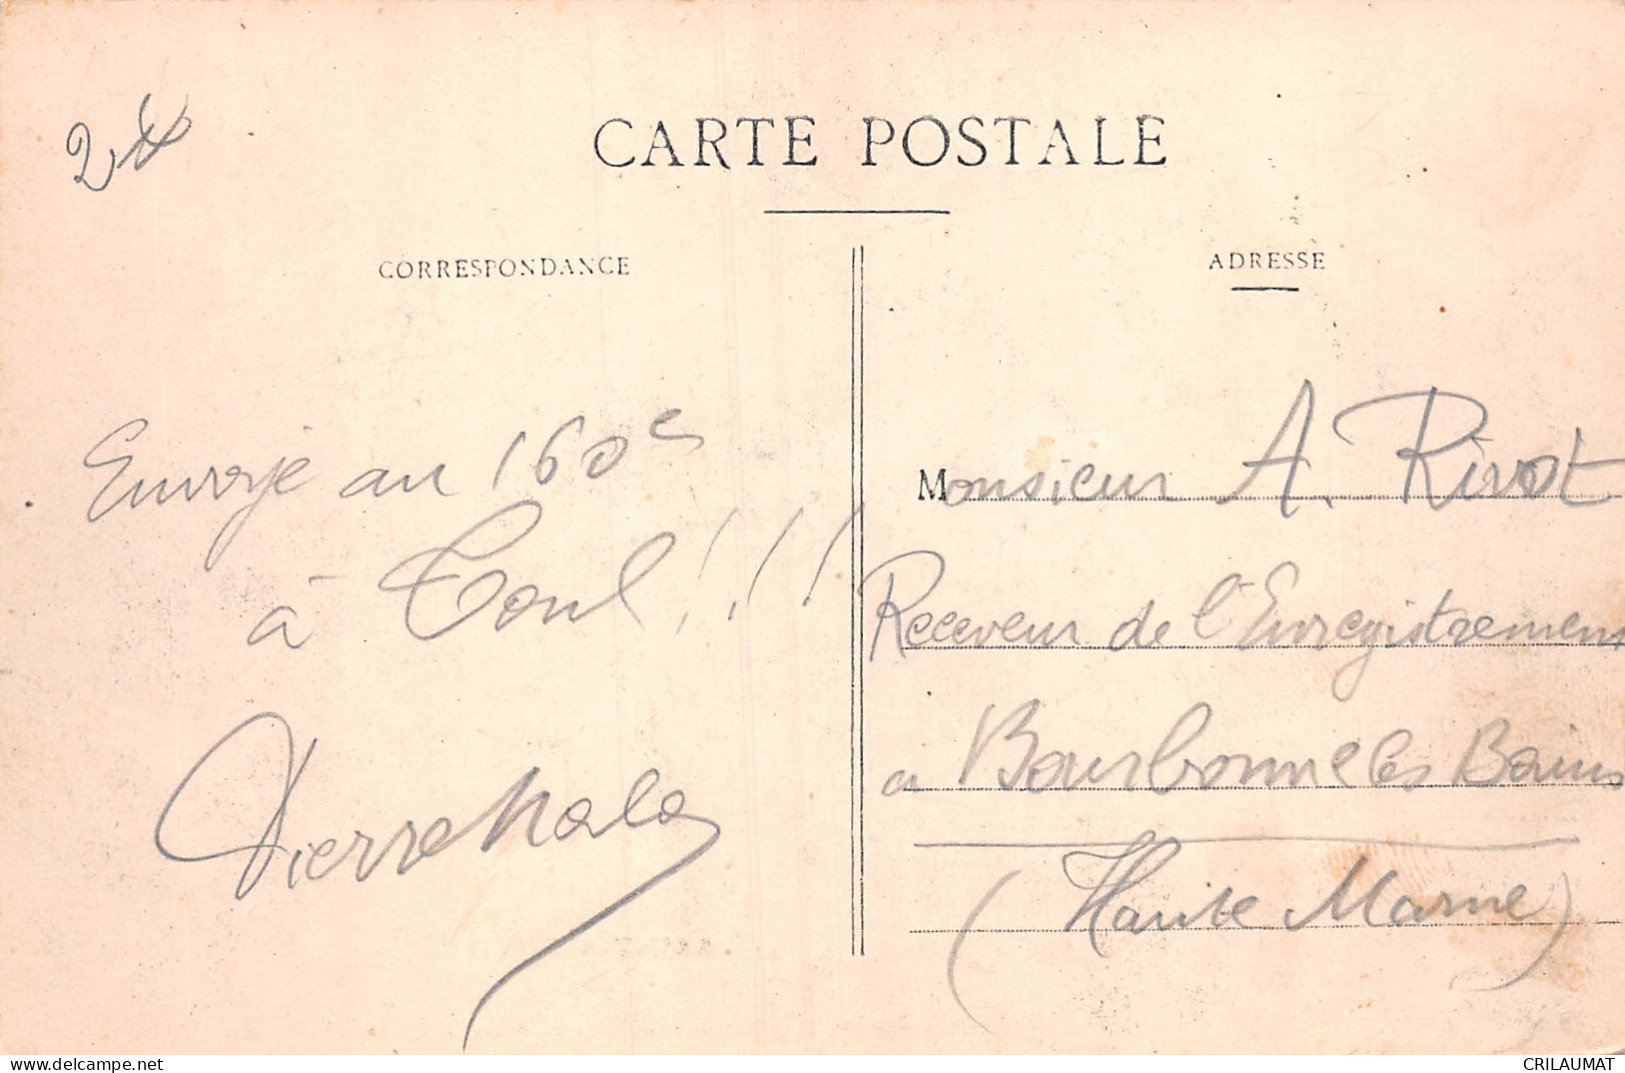 2
CARTE POSTALE
CORRESPONDANCE
ADRESSE
Envoyé au 160e
à Toul !!!
Monsieur A. Rivot
Receveur de l'Enregistrement
à Bourbonne les Bains
(Haute Marne)
delcampe.net
CRILAUMAT